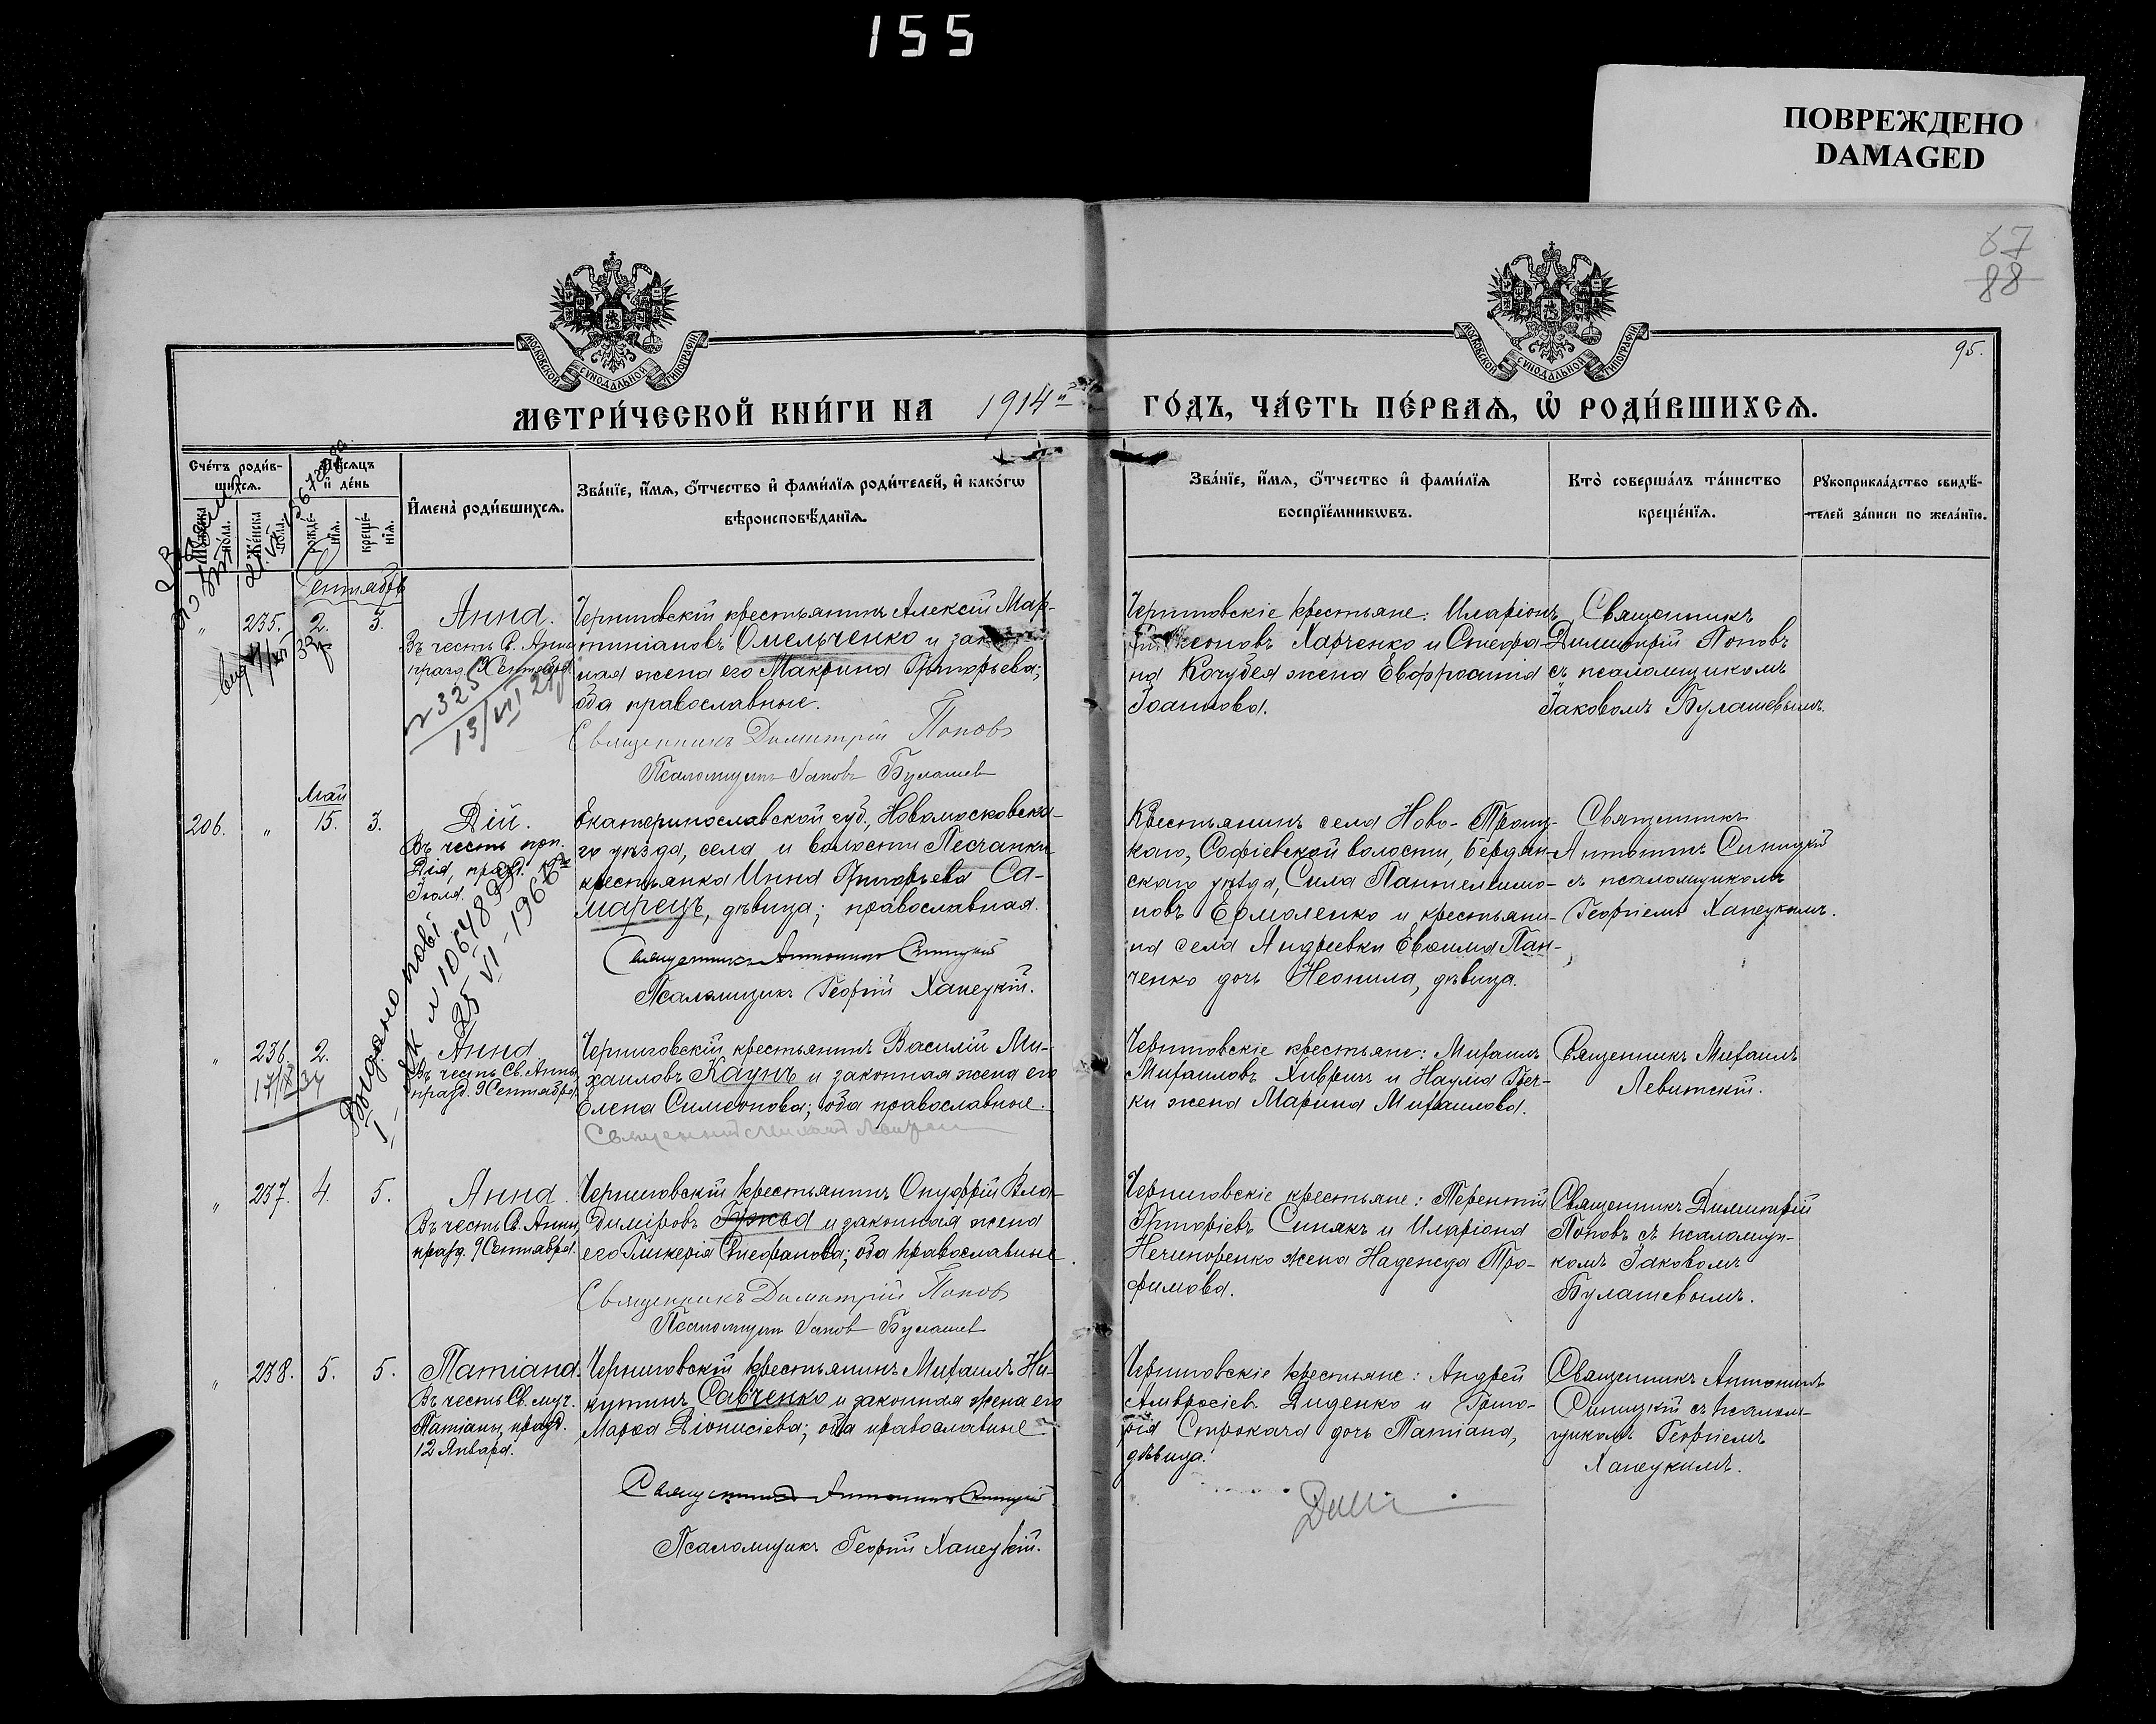 155
ПОВРЕЖДЕНО
DAMAGED
67
88
95.
МОСКОВСКОЙ СѴНОДАЛЬНОЙ ТИПОГРАФІИ
МОСКОВСКОЙ СѴНОДАЛЬНОЙ ТИПОГРАФІИ
МЕТРИ́ЧЕСКОЙ КНИ́ГИ НА 1914й ГО́ДЪ, ЧА́СТЬ ПЕ́РВАѦ, Ѽ РОДИ́ВШИХСѦ.
Сче́тъ роди́в-
шихсѧ.
Мѣ́сѧцъ
и҆ де́нь
Мꙋ́жеска
по́ла.
Же́нска
по́ла.
рожде́-
нїѧ.
креще́-
нїѧ.
И҆мена̀ роди́вшихсѧ.
Зва́нїе, и҆́мѧ, ѻ҆́тчество и҆ фами́лїѧ роди́телей, и҆ како́гѡ
вѣроисповѣ́данїѧ.
Зва́нїе, и҆́мѧ, ѻ҆́тчество и҆ фами́лїѧ
воспрїе́мникѡвъ.
Кто̀ соверша́лъ та́инство
креще́нїѧ.
Рꙋкоприкла́дство свидѣ́-
телей за́писи по жела́нїю.
Сентябрь
" 235. 2. 3.
Анна.
Въ честь Св. Анны,
празд. 9 Сентября.
N 325
Черниговскій крестьянинъ Алексій Мар-
тиніановъ Омельченко и закон-
ная жена его Макрина Григорьева;
оба православные.
Священникъ Димитрій Поповъ
Псаломщикъ Іаковъ Булашев
Черниговскіе крестьяне: Иларіонъ
Харченко и Стефа-
на Кочубея жена Евфросинія
Іоаннова.
Священникъ
Димитрій Поповъ
съ псаломщикомъ
Іаковомъ Булашевымъ.
Май
206. " 15. 3.
Дій.
Въ честь преп.
Дія, празд.
Іюля.
Видано повт
25 VI-1966
Екатеринославской губ., Новомосковска-
го уѣзда, села и волости Песчанки
крестьянка Инна Григорьева Са-
марецъ, дѣвица; православная.
Священникъ Антонинъ Синицкій
Псаломщикъ Георгій Ханецкій.
Крестьянинъ села Ново-Троиц-
каго, Софіевской волости, Бердян-
скаго уѣзда, Сила Пантелеимо-
новъ Ермоленко и крестьяни-
на села Андреевки Евѳимія Пан-
ченко дочь Неонила, дѣвица.
Священникъ
Антонинъ Синицкій
съ псаломщикомъ
Георгіемъ Ханецкимъ.
" 236. 2.
Анна
Въ честь Св. Анны,
празд. 9 Сентября.
Черниговскій крестьянинъ Василій Ми-
хаиловъ Каунъ и законная жена его
Елена Симеонова; оба православные.
Черниговскіе крестьяне: Михаилъ
Михаиловъ Хивричъ и Наума Греч-
ки жена Марина Михаилова.
Священникъ Михаилъ
Левитскій.
" 237. 4. 5.
Анна.
Въ честь Св. Анны,
празд. 9 Сентября.
Черниговскій крестьянинъ Онуфрій Вла-
диміровъ и законная жена
его Гликерія Стефанова; оба православные.
Священникъ Димитрій Поповъ
Псаломщикъ Іаковъ Булашев
Черниговскіе крестьяне: Терентій
Григоріевъ Синякъ и Иларіона
Нечипоренко жена Надежда Тро-
фимова.
Священникъ Димитрій
Поповъ съ псаломщи-
комъ Іаковомъ
Булашевымъ.
" 238. 5. 5.
Татіана.
Въ честь Св. муч.
Татіаны, празд.
12 Января.
Черниговскій крестьянинъ Михаилъ Ни-
китинъ Савченко и законная жена его
Марѳа Діонисіева; оба православные.
Священникъ Антонинъ Синицкій
Псаломщикъ Георгій Ханецкій.
Черниговскіе крестьяне: Андрей
Амвросіевъ Диденко и Григо-
рія Строкача дочь Татіана,
дѣвица.
Священникъ Антонинъ
Синицкій съ псалом-
щикомъ Георгіемъ
Ханецкимъ.